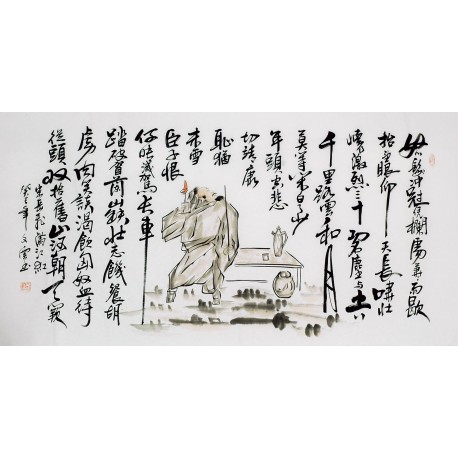 怒髮衝冠憑欄處瀟雨歇
抬望眼仰天長嘯壯
懷激烈三十功名塵與土八
千里路雲和月
莫等閒白了少
年頭空悲
切靖康
恥猶
未雪
臣子恨
何時滅駕長車
踏破賀蘭山缺壯志飢餐胡
虜肉笑談渴飲匈奴血待
從頭收拾舊山河朝天闕
宋岳飛滿江紅
年文雲